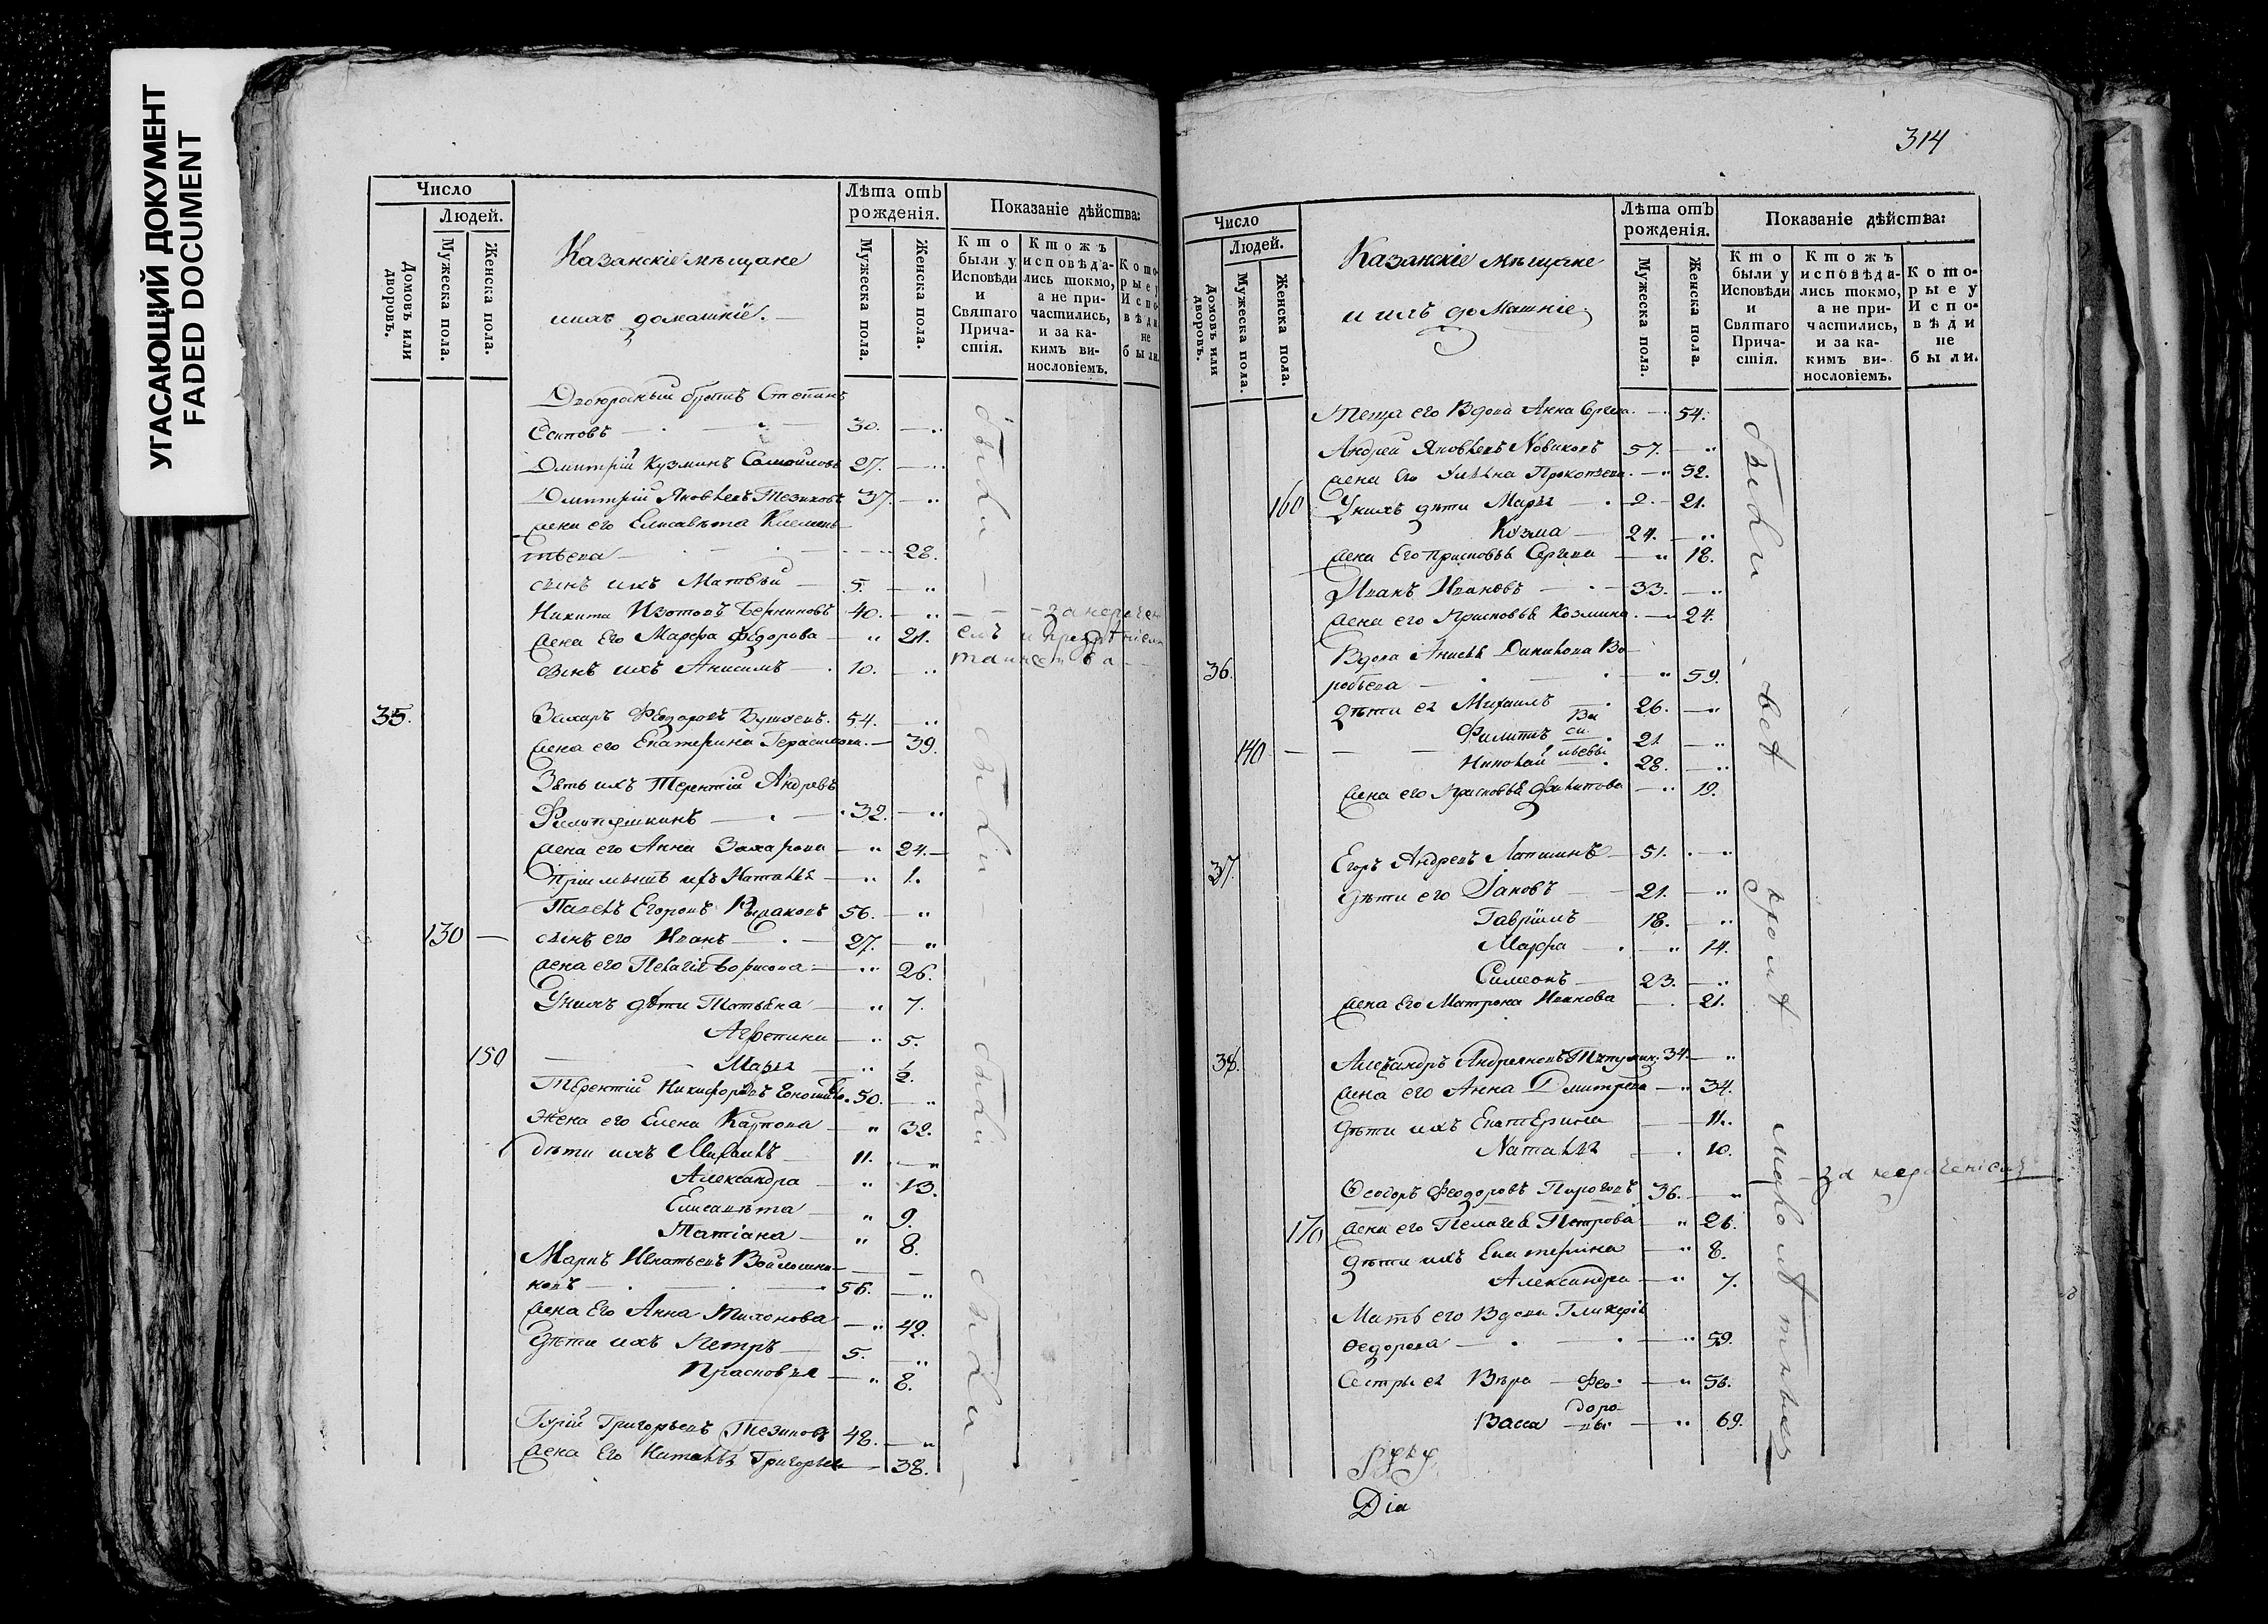 УГАСАЮЩИЙ ДОКУМЕНТ
FADED DOCUMENT
Число
Людей.
Домовъ или дворовъ.
Мужеска пола.
Женска пола.
Казанскіе мѣщане
ихъ домашніе.
Лѣта отъ рожденія.
Мужеска пола.
Женска пола.
Показаніе дѣйства:
Кто были у Исповѣди и Святаго Причастія.
Ктожъ исповѣдались токмо, а не причастились, и за какимъ винословіемъ.
Которые у Исповѣди не были.
Двоюродный братъ Степанъ
Осиповъ 30.
Дмитрій Кузминъ Самойловъ 27.
Дмитрій Яковлевъ Тезиковъ 37.
жена его Елисавета Клемен-
тьева 28.
сынъ ихъ Матвѣй 5.
Никита Изотовъ 40.
жена Его Марфа Федорова 21.
сынъ ихъ Анисимъ 10.
35. Захаръ Феодоровъ 54.
жена его Екатерина Герасимова 39.
Зять ихъ Терентій Андреевъ
Филипушкинъ 32.
жена его Анна Захарова 24.
ихъ Наталья 1.
Павелъ Егоровъ 56.
130 сынъ его Иванъ 27.
жена его Пелагія Борисова 26.
У нихъ дѣти Татьяна 7.
5.
150 Марья ½.
Терентій Никифоровъ 50.
Жена его Елена Карпова 32.
дѣти ихъ Михаилъ 11.
Александра 13.
Елисавѣта 9.
Татіана 8.
Маркъ Игнатьевъ Войлошни-
ковъ 56.
жена Его Анна Тихонова 42.
Дѣти ихъ Петръ 5.
Прасковья 8.
Гурій Григорьевъ Тезиковъ 48.
жена Его Наталья Григорьева 38.
были
были
были
были
314
Число
Людей.
Домовъ или дворовъ.
Мужеска пола.
Женска пола.
Казанскіе мѣщане
и ихъ домашніе
Лѣта отъ рожденія.
Мужеска пола.
Женска пола.
Показаніе дѣйства:
Кто были у Исповѣди и Святаго Причастія.
Ктожъ исповѣдались токмо, а не причастились, и за какимъ винословіемъ.
Которые у Исповѣди не были.
Теща его Вдова Анна Сергѣева 54.
Андрей Яковлевъ Новиковъ 57.
жена Его Ульяна Прокопьева 52.
160 У нихъ дѣти Марья 21.
Козма 24.
жена Его Прасковья Сергѣева 18.
Иванъ Ивановъ 33.
жена его Прасковья Козмина 24.
36. Вдова Данилова Во-
робьева 59.
дѣти ея Михаилъ 26.
140 Филиппъ 21.
Николай 28.
жена его Прасковья Филипова 19.
37. Егоръ Андреевъ Лапшинъ 51.
дѣти его Іаковъ 21.
Гавріилъ 18.
Марфа 14.
Симеонъ 23.
жена Его Матрона Иванова 21.
38. Александръ Андреяновъ 34.
жена его Анна Дмитрева 34.
Дѣти ихъ Екатерина 11.
Наталья 10.
Ѳеодоръ Феодоровъ Пироговъ 36.
170 жена его Пелагея Петрова 26.
дѣти ихъ Екатерина 8.
Александра 7.
Мать его Вдова Гликерія
Ѳедорова 59.
Сестры ея Вѣра Фео- 56.
Васса доро- 69.
вы
были
всѣ
кромѣ
за нерачениемъ
Dia